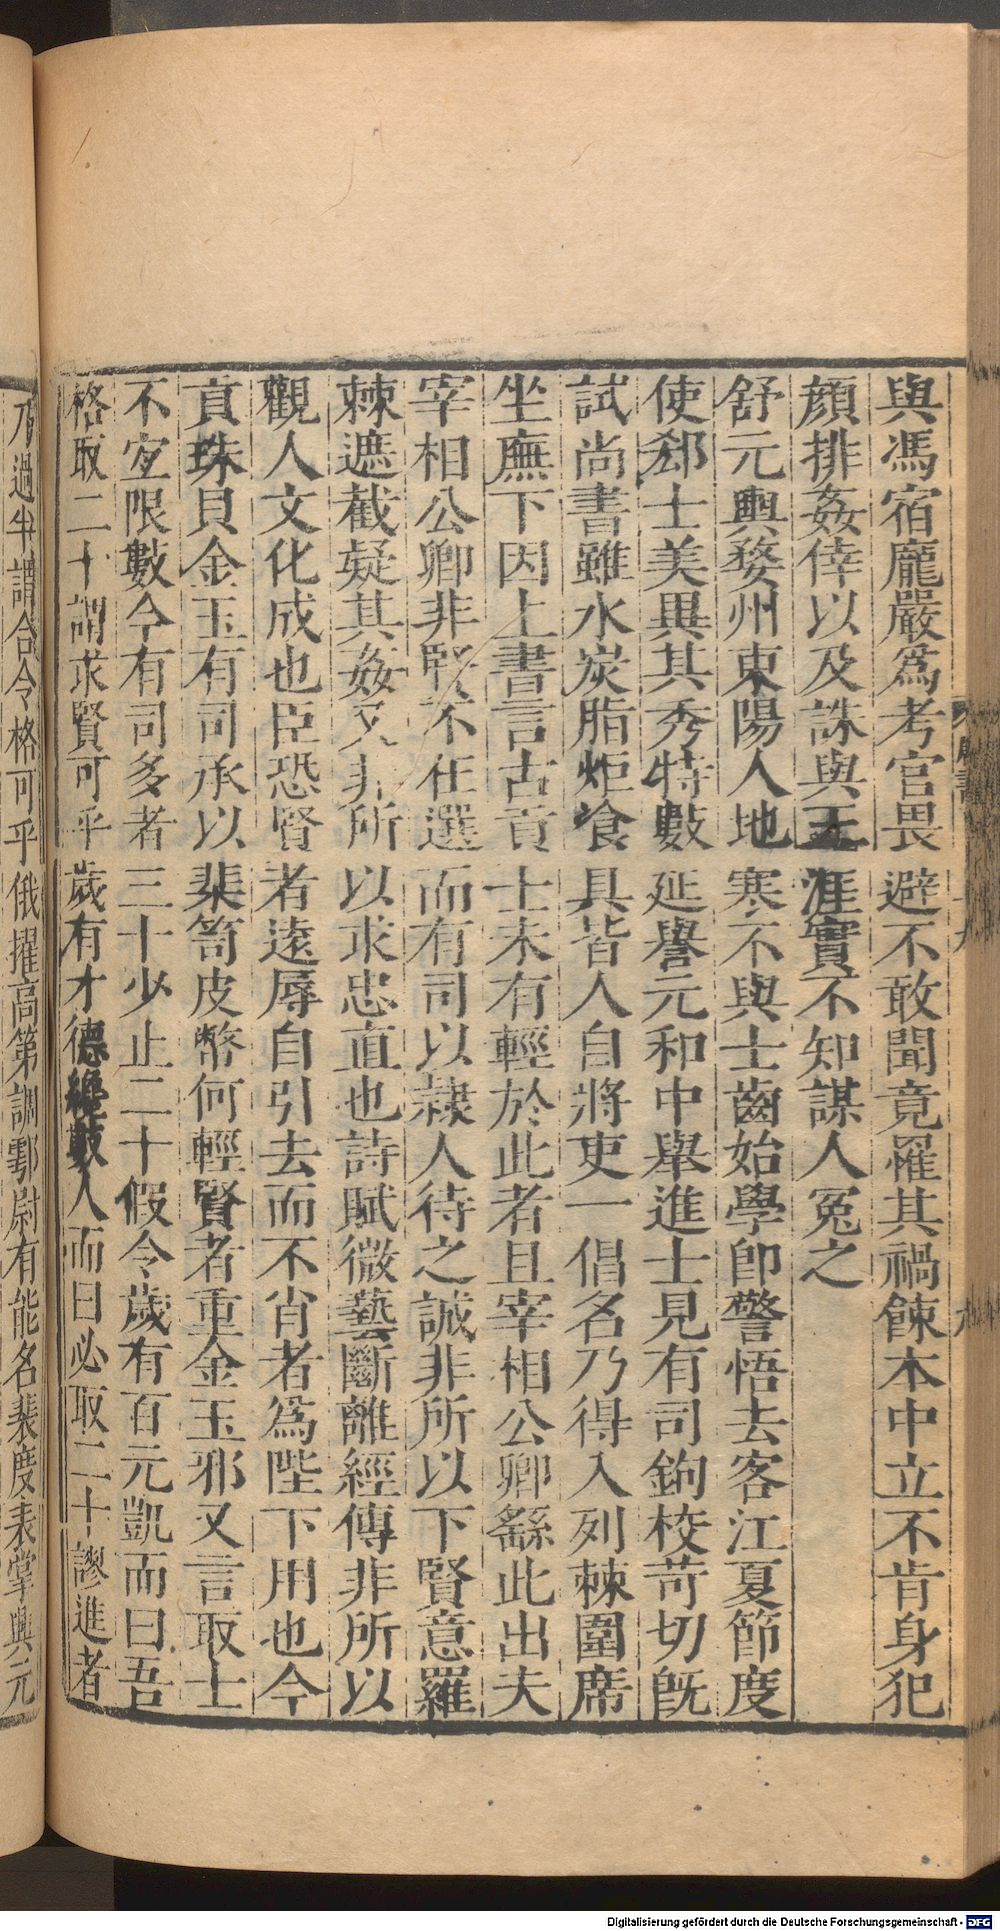 與馮宿龐嚴爲考官畏避不敢聞竟罹其禍餗本中立不肯身犯
顏排姦倖以及誅與王涯實不知謀人冤之
舒元輿婺州東陽人地寒不與士齒始學卽警悟去客江夏節度
使郄士美異其秀特數延譽元和中舉進士見有司鉤校苛切旣
試尚書雖水炭脂炬飡具皆人自將吏一倡名乃得入列棘圍席
坐廡下因上書言古貢士未有輕於此者且宰相公卿繇此出夫
宰相公卿非賢不在選而有司以隸人待之誠非所以下賢意羅
棘遮截疑其姦又非所以求忠直也詩賦微藝斷離經傳非所以
觀人文化成也臣恐賢者遠辱自引去而不肖者爲陛下用也今
貢珠貝金玉有司承以棐笥皮幣何輕賢者重金玉邪又言取士
不宜限數今有司多者三十少止二十假令歲有百元凱而曰吾
格取二十謂求賢可乎歲有才德纔數人而曰必取二十謬進者
乃過半謂合令格可乎俄擢高第調鄠尉有能名裴度表掌興元
Digitalisierung gefördert durch die Deutsche Forschungsgemeinschaft - DFG